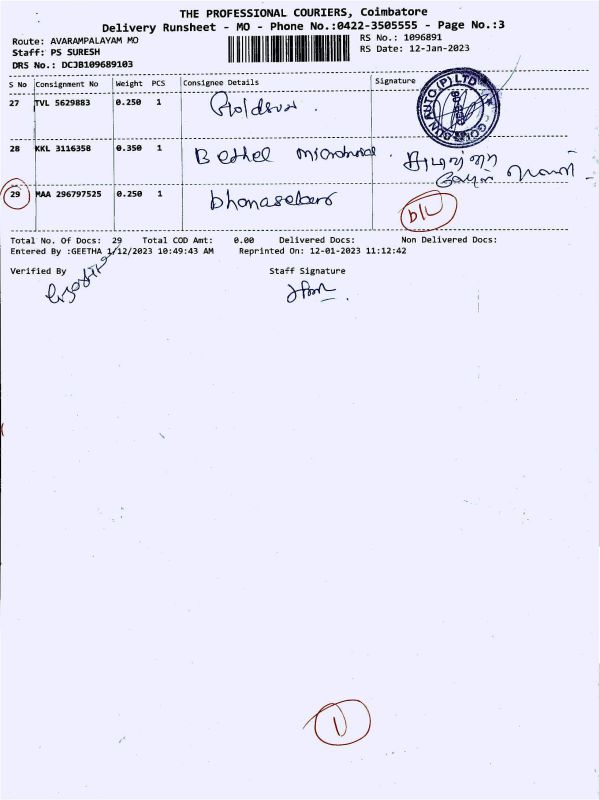 THE PROFESSIONAL COURIERS, Coimbatore
Delivery Runsheet - MO - Phone No.:0422-3505555 - Page No.:3
Route: AVARAMPALAYAM MO
RS No.: 1096891
Staff: PS SURESH
RS Date: 12-Jan-2023
DRS No.: DCJB109689103
S No Consignment No Weight PCS Consignee Details Signature
27 TVL 5629883 0.250 1
28 KKL 3116358 0.350 1 Bethel
29 MAA 296797525 0.250 1
Total No. Of Docs: 29 Total COD Amt: 0.00 Delivered Docs: Non Delivered Docs:
Entered By :GEETHA 1/12/2023 10:49:43 AM Reprinted On: 12-01-2023 11:12:42
Verified By Staff Signature
1